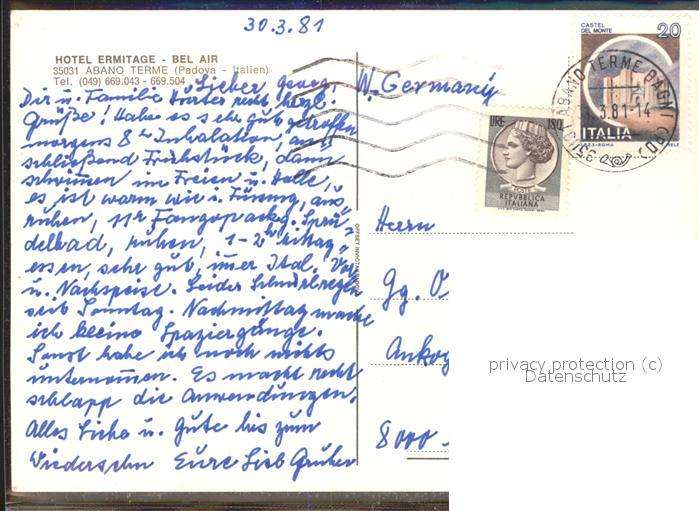 30.3.81
HOTEL ERMITAGE - BEL AIR
35031 ABANO TERME (Padova - Italien)
Tel. (049) 669.043 - 669.504
Lieber Georg,
Dir u. Familie recht herzl.
Grüße! Habe es sehr gut getroffen
morgens 8 Uhr Inhalation, an-
schließend Frühstück, dann
schwimmen im Freien u. Halle,
es ist warm wie i. Füssing, aus
ruhen, 11 Uhr Fangopackg. Spru
delbad, ruhen, 1-2 Uhr Mittag
essen, sehr gut, immer Ital. Vor
u. Nachspeise. Leider Schnürlregen
seit Sonntag. Nachmittag mache
ich kleine Spaziergänge.
Sonst habe ich noch nichts
unternommen. Es macht recht
schlapp die Anwendungen.
Alles Liebe u. Gute bis zum
Wiedersehn Eure Lisb Gruber
W. Germany
Herrn
Gg. O
Ankog
8000
CASTEL
DEL MONTE
20
ITALIA
LIRE 150
POSTE
REPVBBLICA
ITALIANA
ABANO TERME BAGNI (PD)
3.81-14
privacy protection (c)
Datenschutz